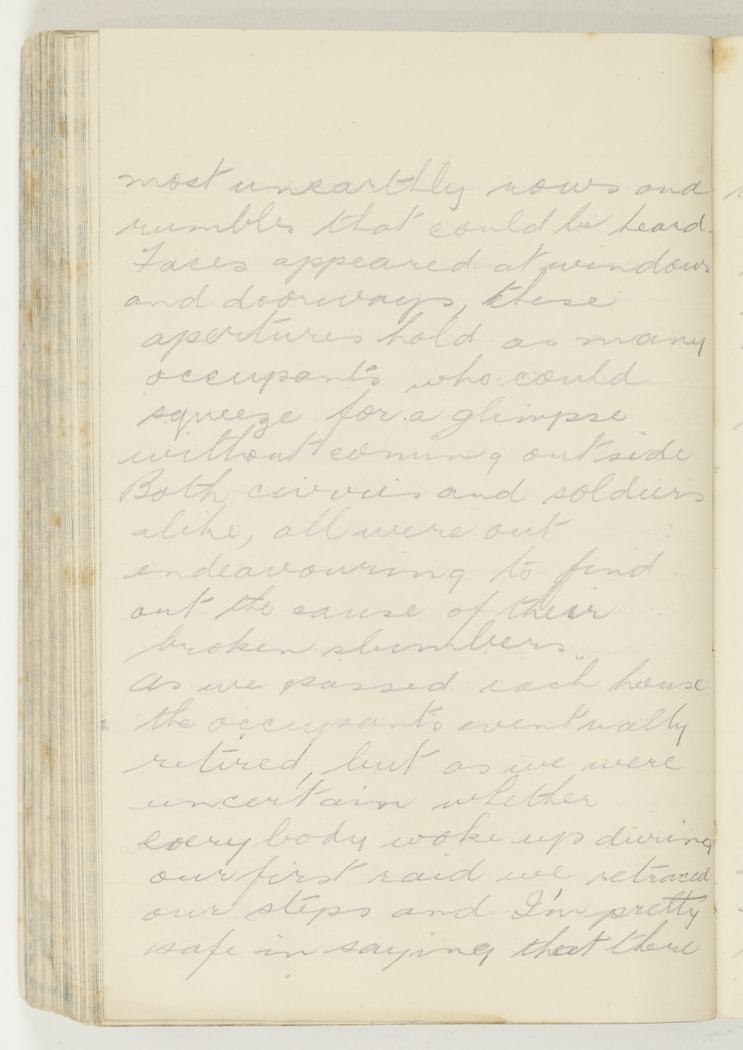 most unearthly rows and
rumbles that could be heard.
Faces appeared at windows
and doorways, these
apertures hold as many
occupants who could
squeeze for a glimpse
without coming outside
Both civvies and soldiers
alike, all were out
endeavouring to find
out the cause of their
broken slumbers.
As we passed each house
the occupants eventually
retired, but as we were
uncertain whether
everybody woke up during
our first raid we retraced
our steps and I'm pretty
safe in saying that there